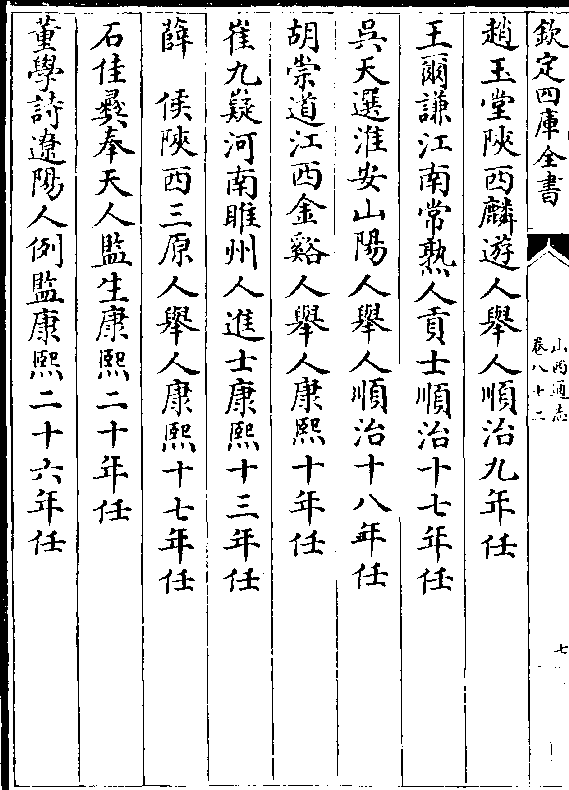 欽定四庫全書
山西通志
卷八十二
七
趙玉堂陜西麟遊人舉人順治九年任
王爾謙江南常熟人貢士順治十七年任
吳天選淮安山陽人舉人順治十八年任
胡崇道江西金谿人舉人康熙十年任
崔九嶷河南睢州人進士康熙十三年任
薛　侯陜西三原人舉人康熙十七年任
石佳彝奉天人監生康熙二十年任
董學詩遼陽人例監康熙二十六年任